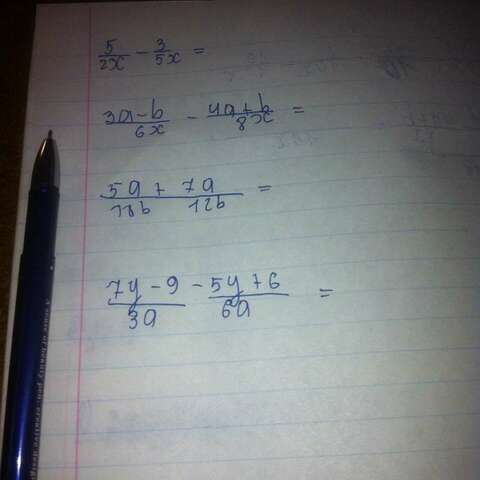 5/2x - 3/5x =
3a-b/6x - 4a+b/8x =
5a/18b + 7a/12b =
7y-9/3a - 5y+6/6a =